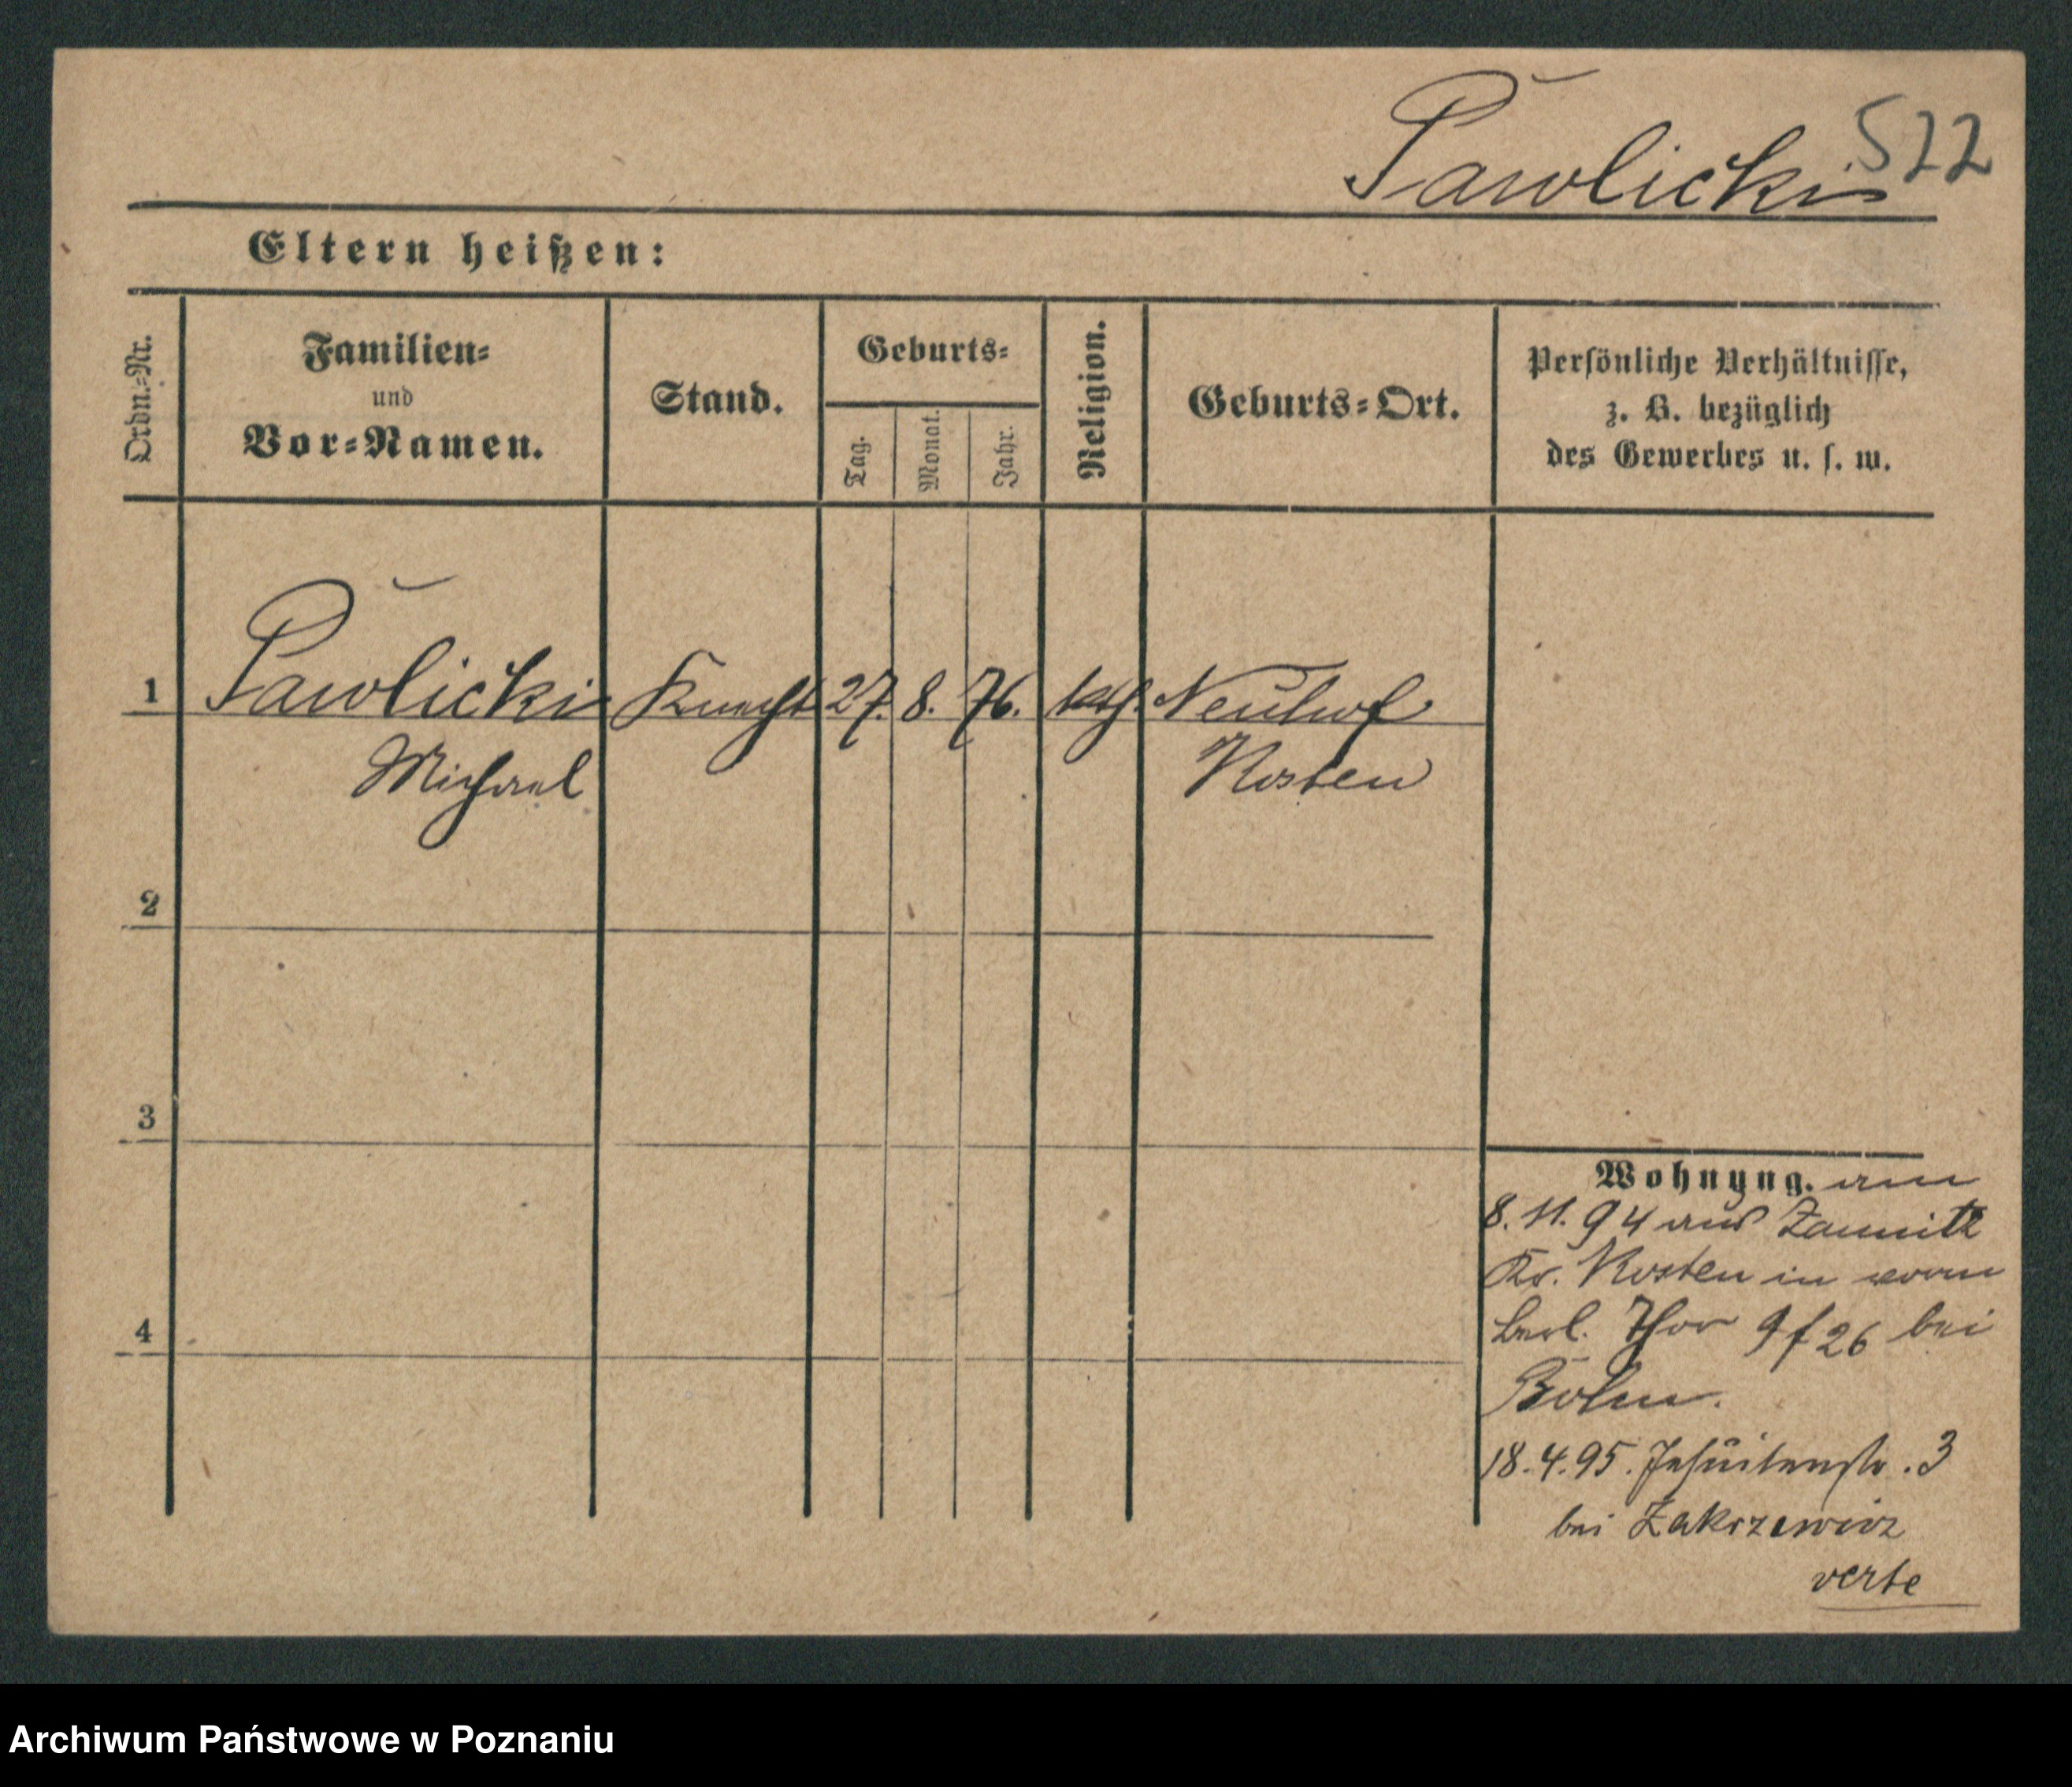 Pawlicki 522
Eltern heißen:
Ordn.-Nr.
Familien-
und
Vor-Namen.
Stand.
Geburts-
Tag.
Monat.
Jahr.
Religion.
Geburts-Ort.
Persönliche Verhältnisse,
z. B. bezüglich
des Gewerbes u. s. w.
1 Pawlicki Knecht 27. 8. 76. kth. Neuhof
Michael Kosten
2
3
4
Wohnyng. am
8. 11. 94 aus
Kr. Kosten in
berl. Thor 9f26 bei
Bohm.
18.4.95. Jesuitenstr. 3
bei Zakrzewicz
verte
Archiwum Państwowe w Poznaniu